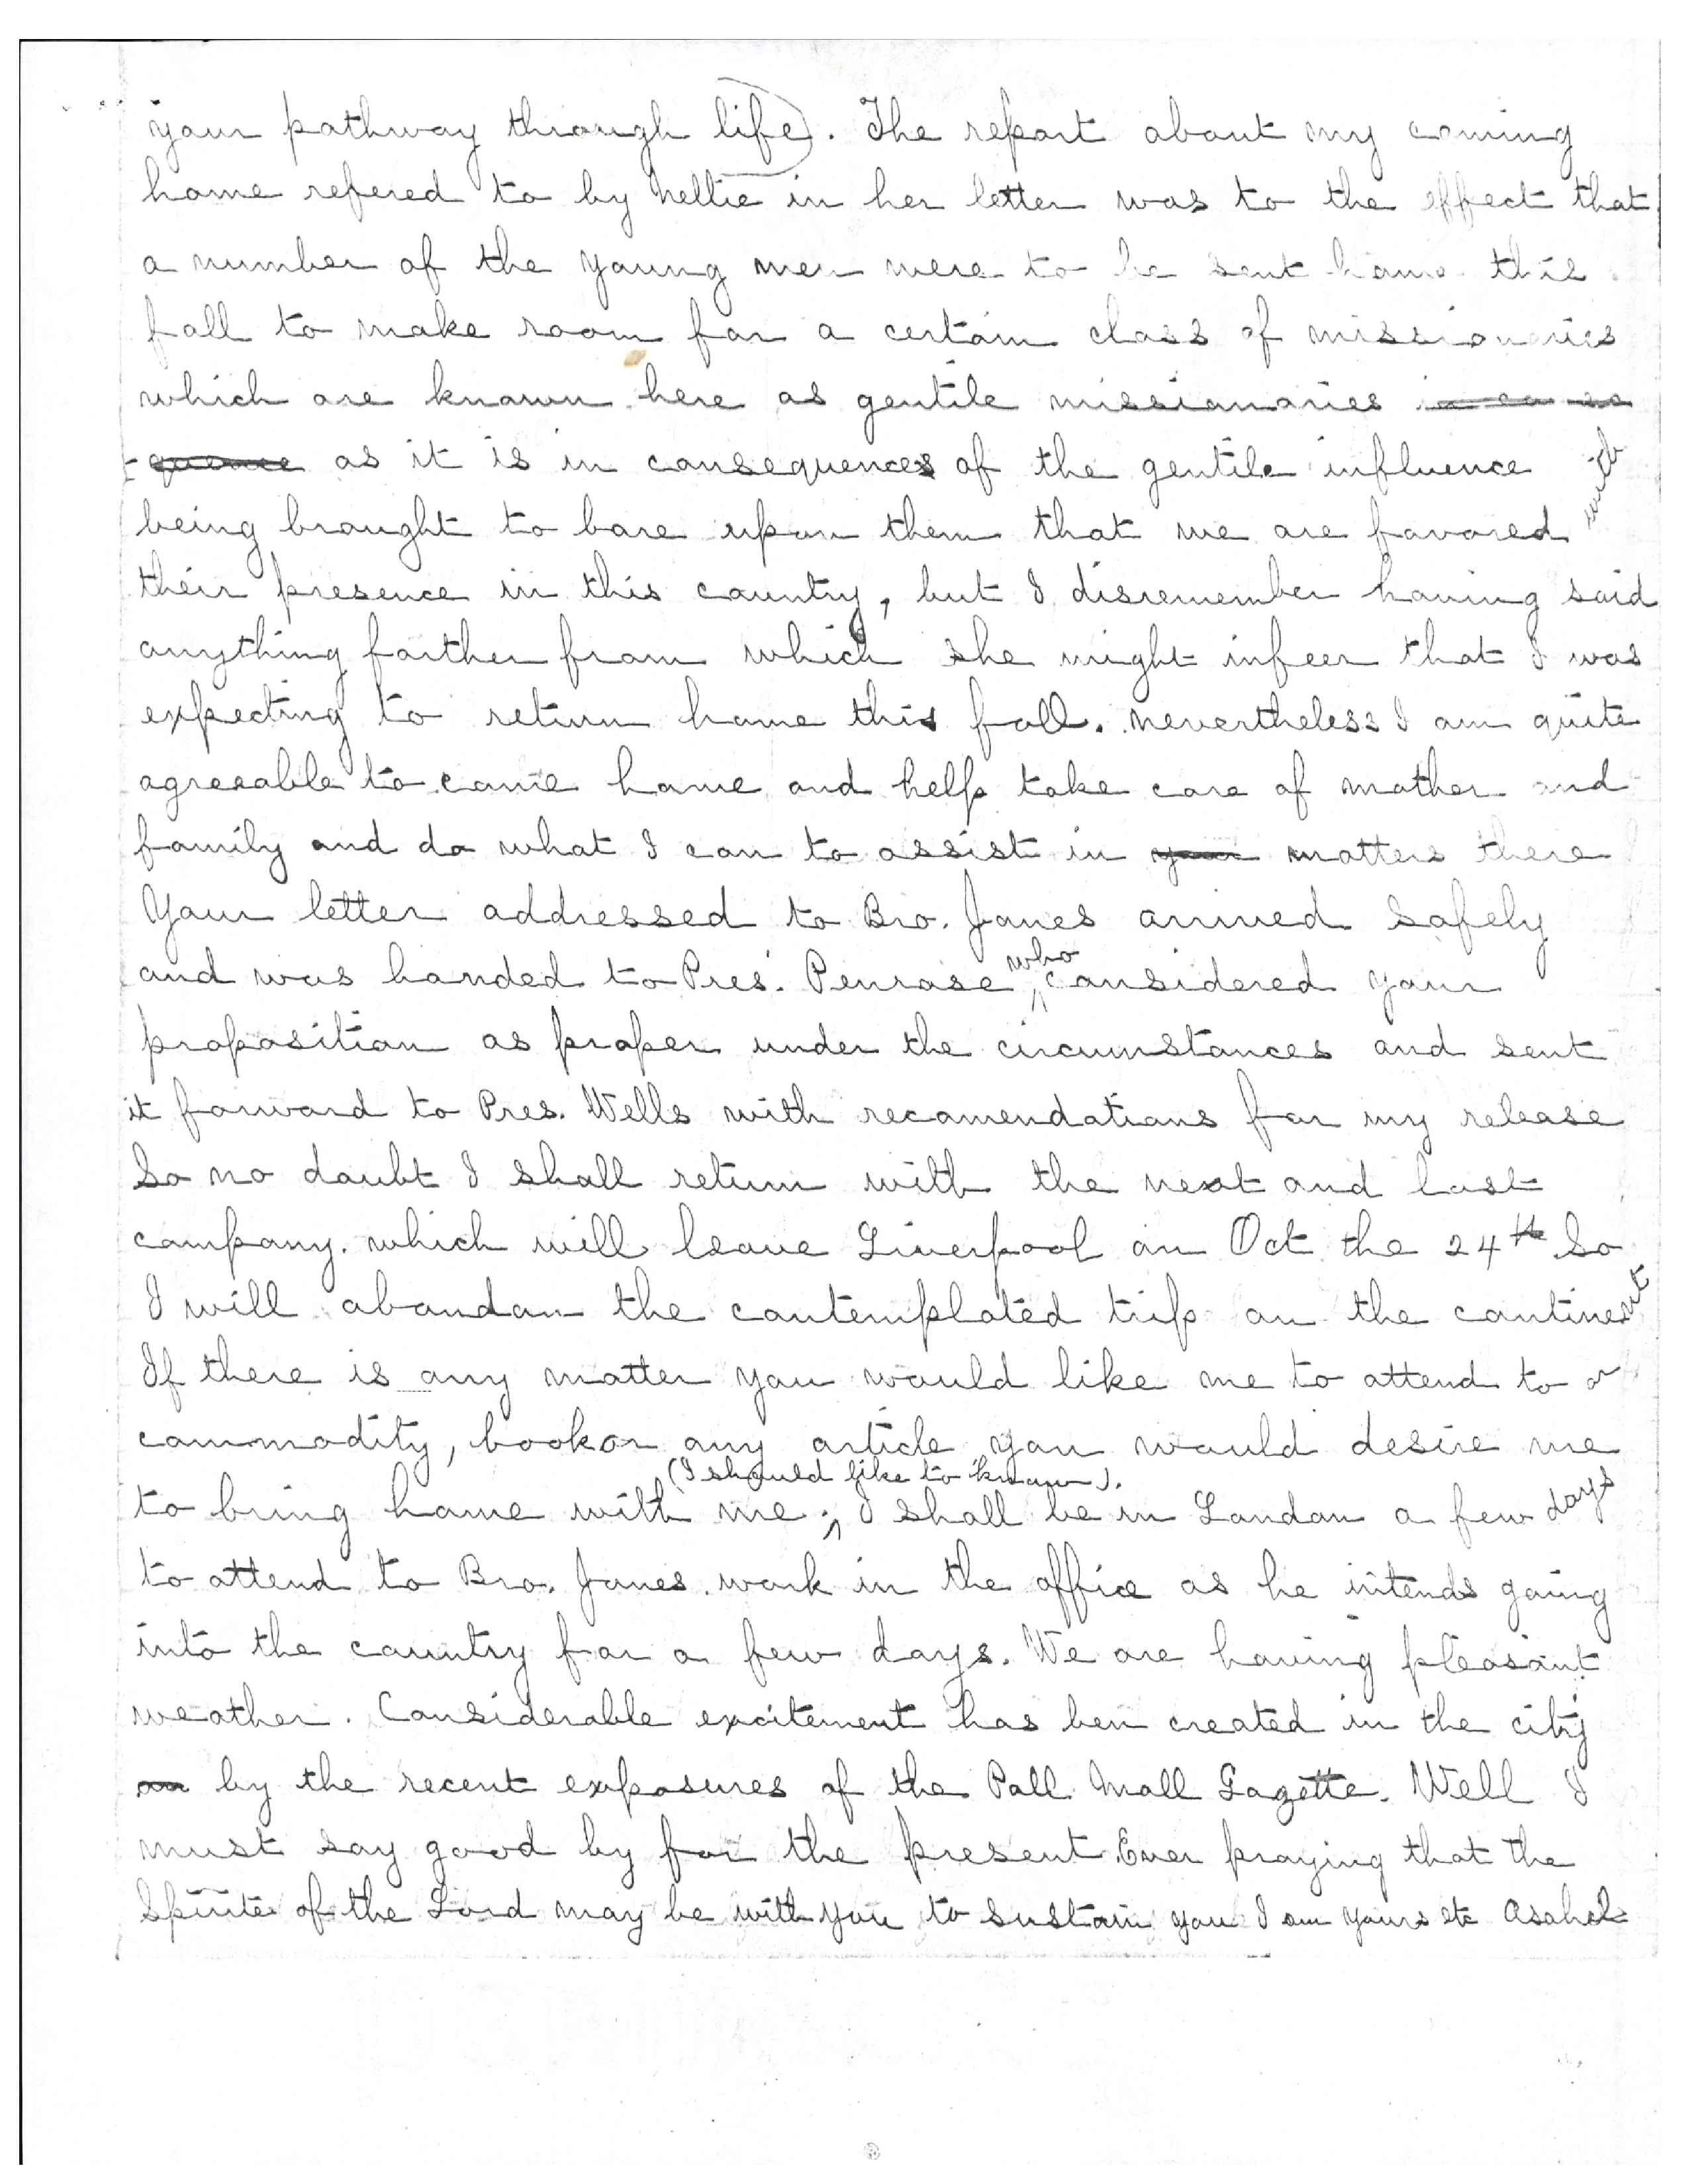 your pathway through life). The report about my coming
home refered to by Nellie in her letter was to the effect that
a number of the young men were to be sent home this
fall to make room for a certain class of missionaries
which are known here as gentile missionaries in con se
quence as it is in consequences of the gentile influence
being brought to bare upon them that we are favored with
their presence in this country, but I disremember having said
anything farther from which she might infeer that I was
expecting to return home this fall. nevertheless I am quite
agreeable to come home and help take care of mother and
family and do what I can to assist in your matters there
Your letter addressed to Bro. Janes arrived safely
and was handed to Pres. Penrose who considered your
proposition as proper under the circumstances and sent
it forward to Pres. Wells with recomendations for my release
So no doubt I shall return with the next and last
company. which will leave Liverpool on Oct the 24th So
I will abandon the contemplated trip on the continent
If there is any matter you would like me to attend to or
commodity, book or any article you would desire me
to bring home with me; (I should like to know). I shall be in London a few days
to attend to Bro. Janes. work in the office as he intends going
into the country for a few days. We are having pleasant
weather. Considerable excitement has ben created in the city
on by the recent exposures of the Pall Mall Gazette. Well I
must say good by for the present. Ever praying that the
Spirite of the Lord may be with you to sustain you I am yours etc Asahel